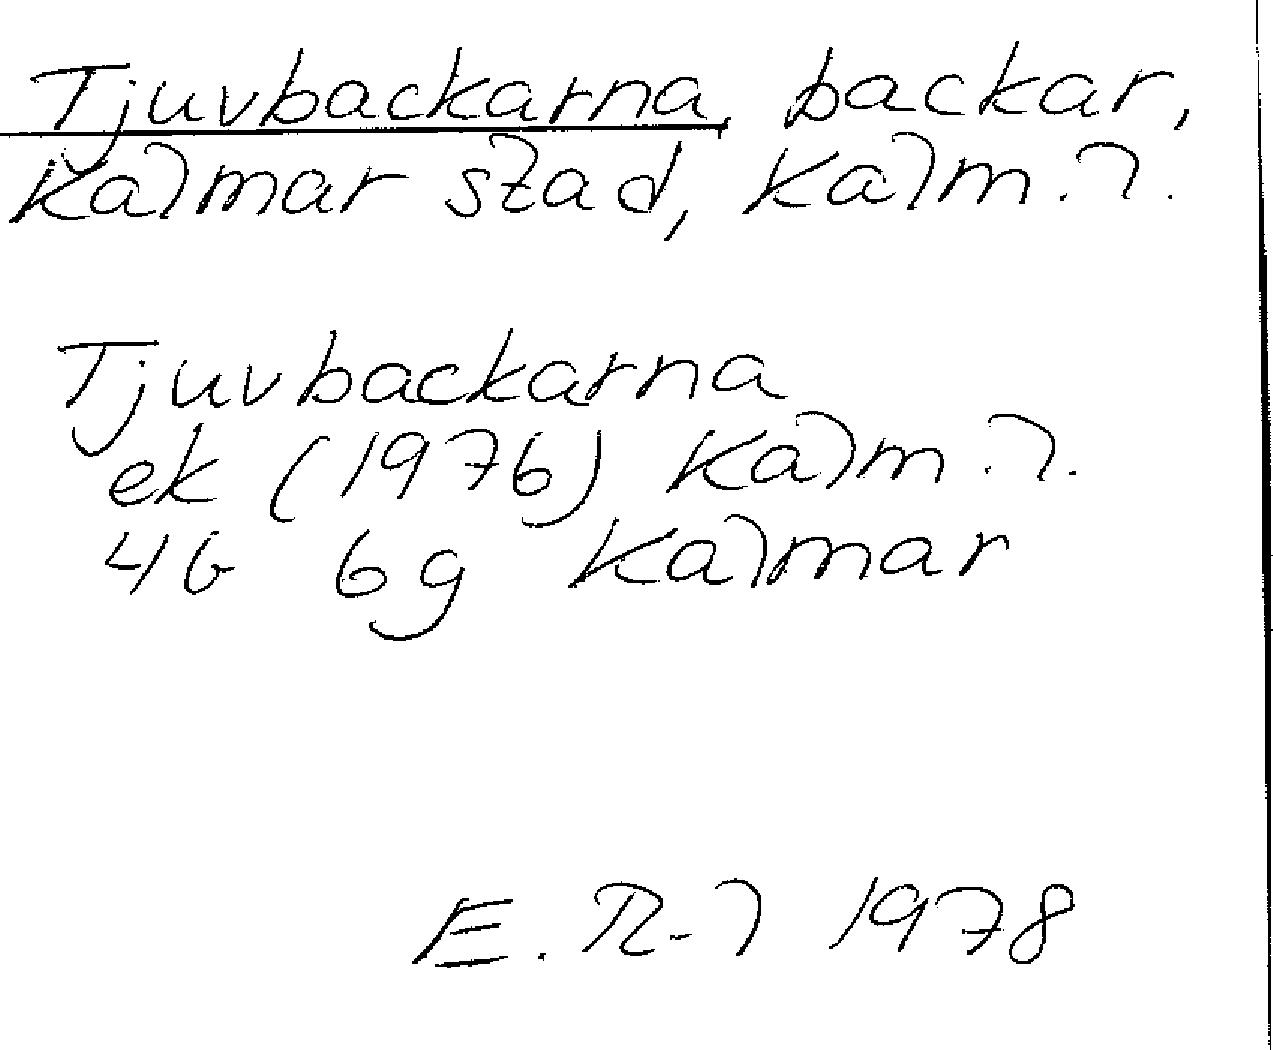 Tjuvbackarna, backar,
Kalmar stad, Kalm. l.
Tjuvbackarna
ek (1976) Kalm. l.
4G 6g Kalmar
E. R-l 1978